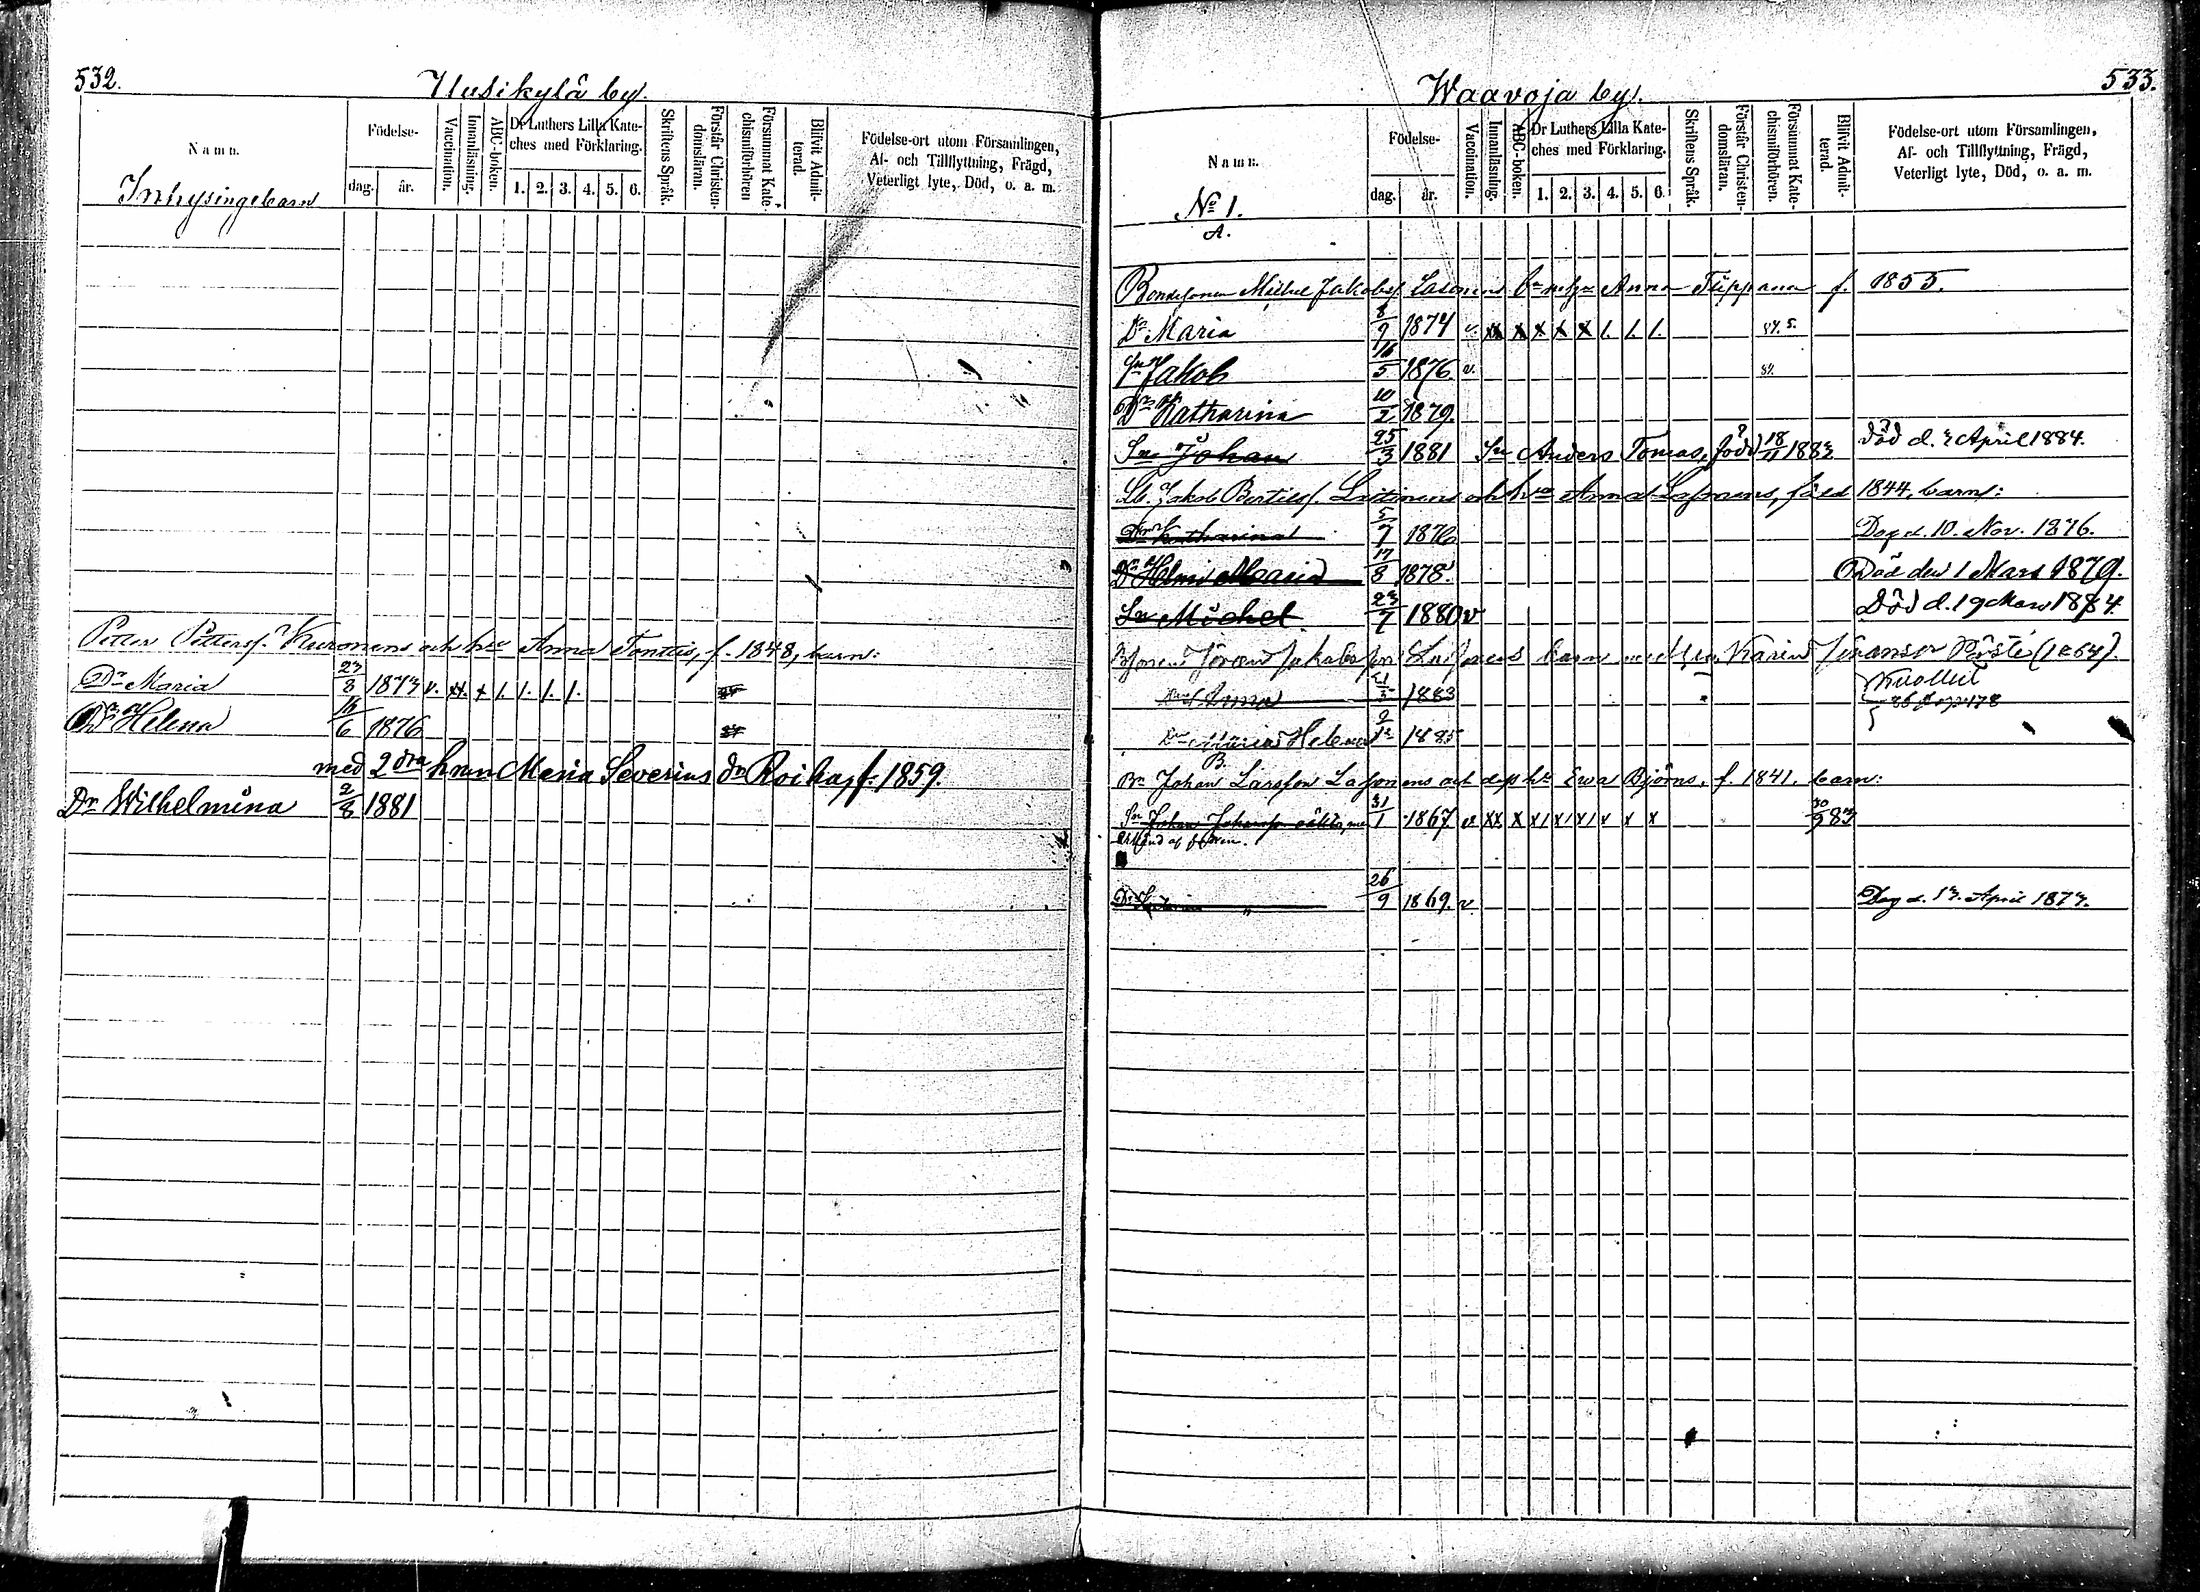 532.
Uusikylä by.
Namn.
Födelse-
dag.
år.
Vaccination.
Innanläsning.
ABC-boken.
Dr Luthers Lilla Kate-
ches med Förklaring.
1. 2. 3. 4. 5. 6.
Skriftens Språk.
Förstår Christen-
domsläran.
Försummat Kate-
chismiförhören
Blifvit Admit-
terad.
Födelse-ort utom Församlingen,
Af- och Tillflyttning, Frägd,
Veterligt lyte, Död, o. a. m.
Inhysingebarn
Petter Petterss. Kuronens och hru Anna Tonttis, f. 1848, barn:
Dr Maria 23/8 1873 v. xx. x 1. 1. 1. 1.
Dr Helena 16/6 1876
med 2dra hrun Maria Severius dr Roika, f. 1859.
Dr Wilhelmina 2/8 1881
533.
Waavoja by.
Namn.
Födelse-
dag.
år.
Vaccination.
Innanläsning.
ABC-boken.
Dr Luthers Lilla Kate-
ches med Förklaring.
1. 2. 3. 4. 5. 6
Skriftens Språk.
Förstår Christen-
domsläran.
Försummat Kate-
chismiförhören.
Blifvit Admit-
terad.
Födelse-ort utom Församlingen,
Af- och Tillflyttning, Frägd,
Veterligt lyte, Död, o. a. m.
No 1.
A.
Bondesonen Michel Jakobss. Lasonens Anna Tiippana f. 1855.
Dr Maria 8/9 1874 v. xx x x x x 1. 1. 1. 84. 5.
Sn Jakob 16/5 1876. v. 84.
Dr Katharina 10/2 1879.
Sn Johan 25/3 1881 Sn Anders Tomas, född 18/11 1883 Död d. 2 April 1884.
Jakob Bertilss. och hru Anna född 1844, barn:
Dr Katharina 5/7 1876 Dog d. 10. Nov. 1876.
Dr Helmi Maria 17/8 1878. Död den 1 Mars 1879.
Sn Michel 23/7 1880 v Död d. 19 Mars 1884.
barn med Karin (1864).
Dr Anna 1883
Dr Maria Helena 1885
B.
Bn Johan Larsson Lasonens och dess hu Ewa Björns, f. 1841. barn:
Sn Johan 31/1 1867. v xx x x1 x1 x1 v x x 30/9 83
26/9 1869. v. Dog d. 13. April 1873.